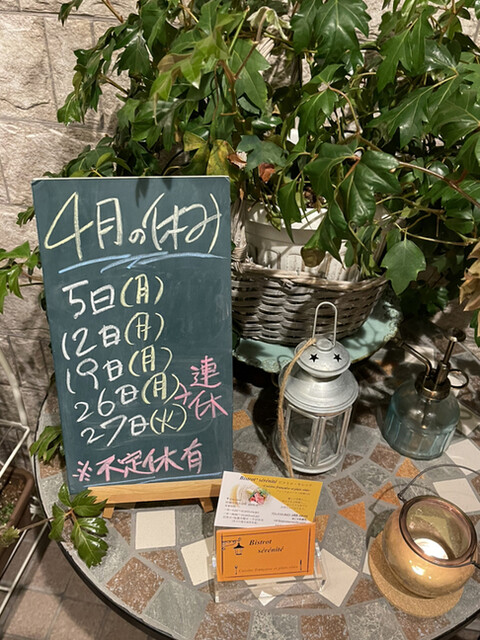 4月の休み
5日(月)
12日(月)
19日(月)
26日(月)
27日(火)
連休
※不定休有
Bistrot sérénité
Bistrot
sérénité